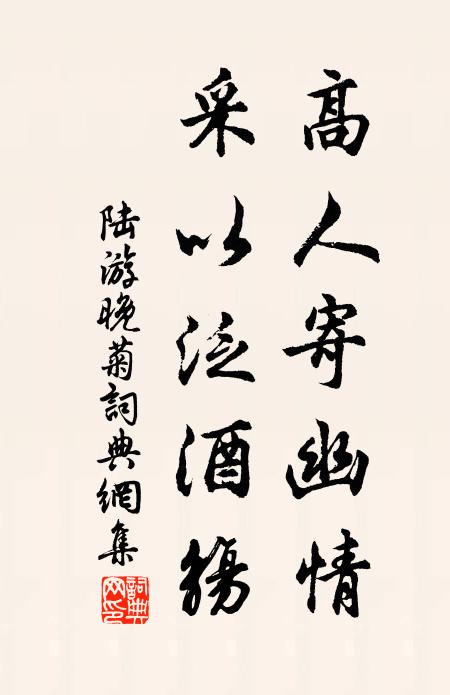 高人寄幽情
采以泛酒觴
陆游晚菊詞典網集
詞典網印